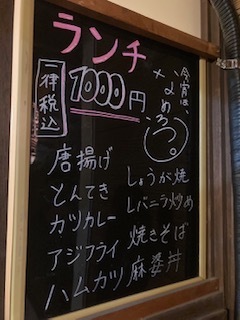 ランチ
一律税込
1000円
今宵は、
唐揚げ
とんてき
カツカレー
アジフライ
ハムカツ
しょうが焼
レバニラ炒め
焼きそば
麻婆丼